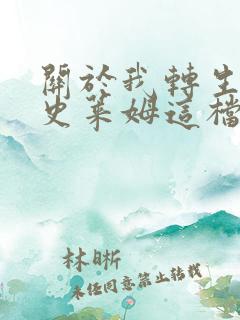 關於我轉生
史萊姆這檔
林晰
未經同意禁止轉載